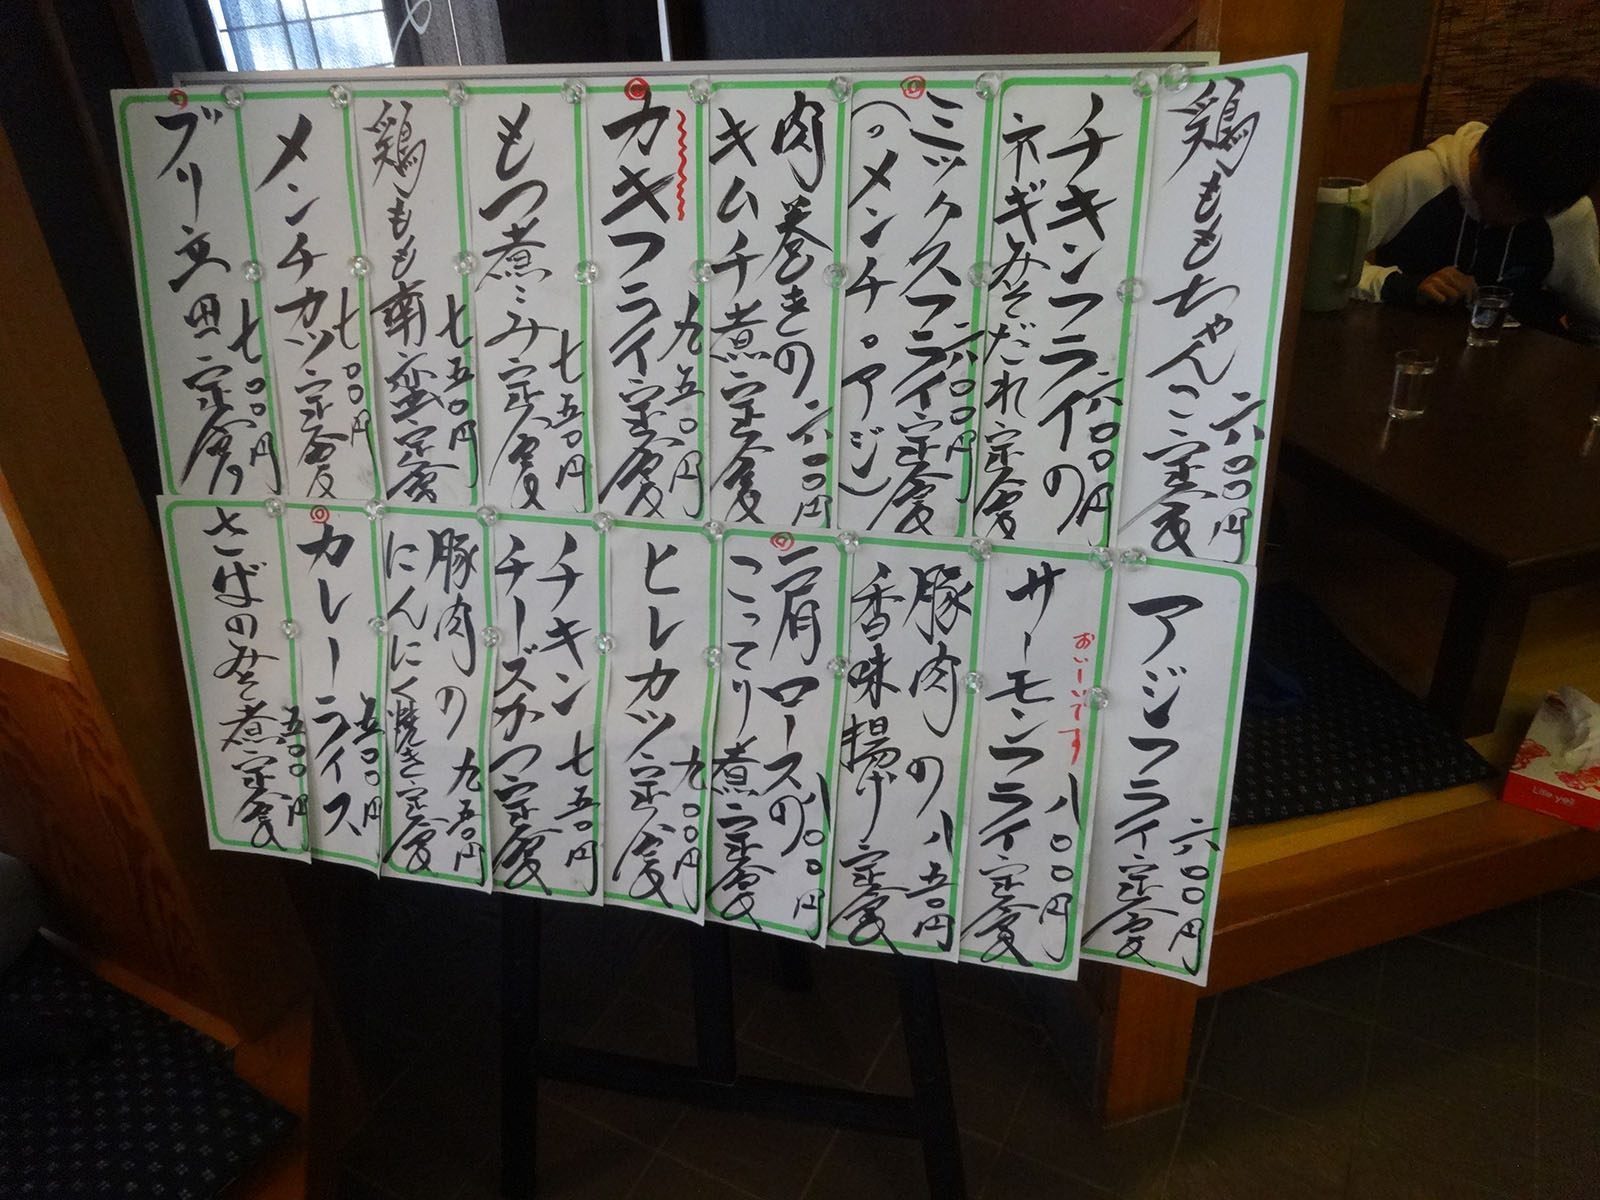 鶏ももちゃんこ定食
六〇〇円
チキンフライの
ネギみそだれ定食
六〇〇円
ミックスフライ定食
(。メンチ。アジ)
六〇〇円
肉巻きの
キムチ煮定食
六〇〇円
カキフライ定食
九五〇円
もつ煮こみ定食
七五〇円
鶏もも南蛮定食
七五〇円
メンチカツ定食
七〇〇円
ブリ立田定食
七〇〇円
アジフライ定食
六〇〇円
おいーいです
サーモンフライ定食
八〇〇円
豚肉の
香味揚げ定食
八五〇円
肩ロースの
こってり煮定食
八〇〇円
ヒレカツ定食
九〇〇円
チキン
チーズかつ定食
七五〇円
豚肉の
にんにく焼き定食
九五〇円
カレーライス
五〇〇円
さばのみそ煮定食
五〇〇円
Lise yell